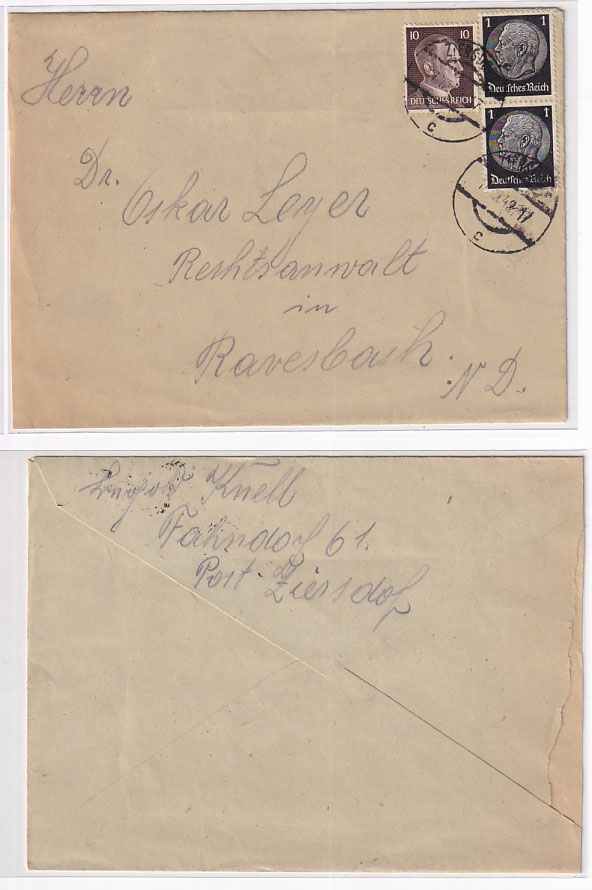 Herrn
10
DEUTSCHES REICH
1 1
Deutsches Reich
1 1
Deutsches Reich
c
42-17
c
Dr.
Oskar Leyer
Reshtsanwalt
in
Ravesbach.
N D.
Leopold Knell
Fahndorf 61.
Post Ziersdorf